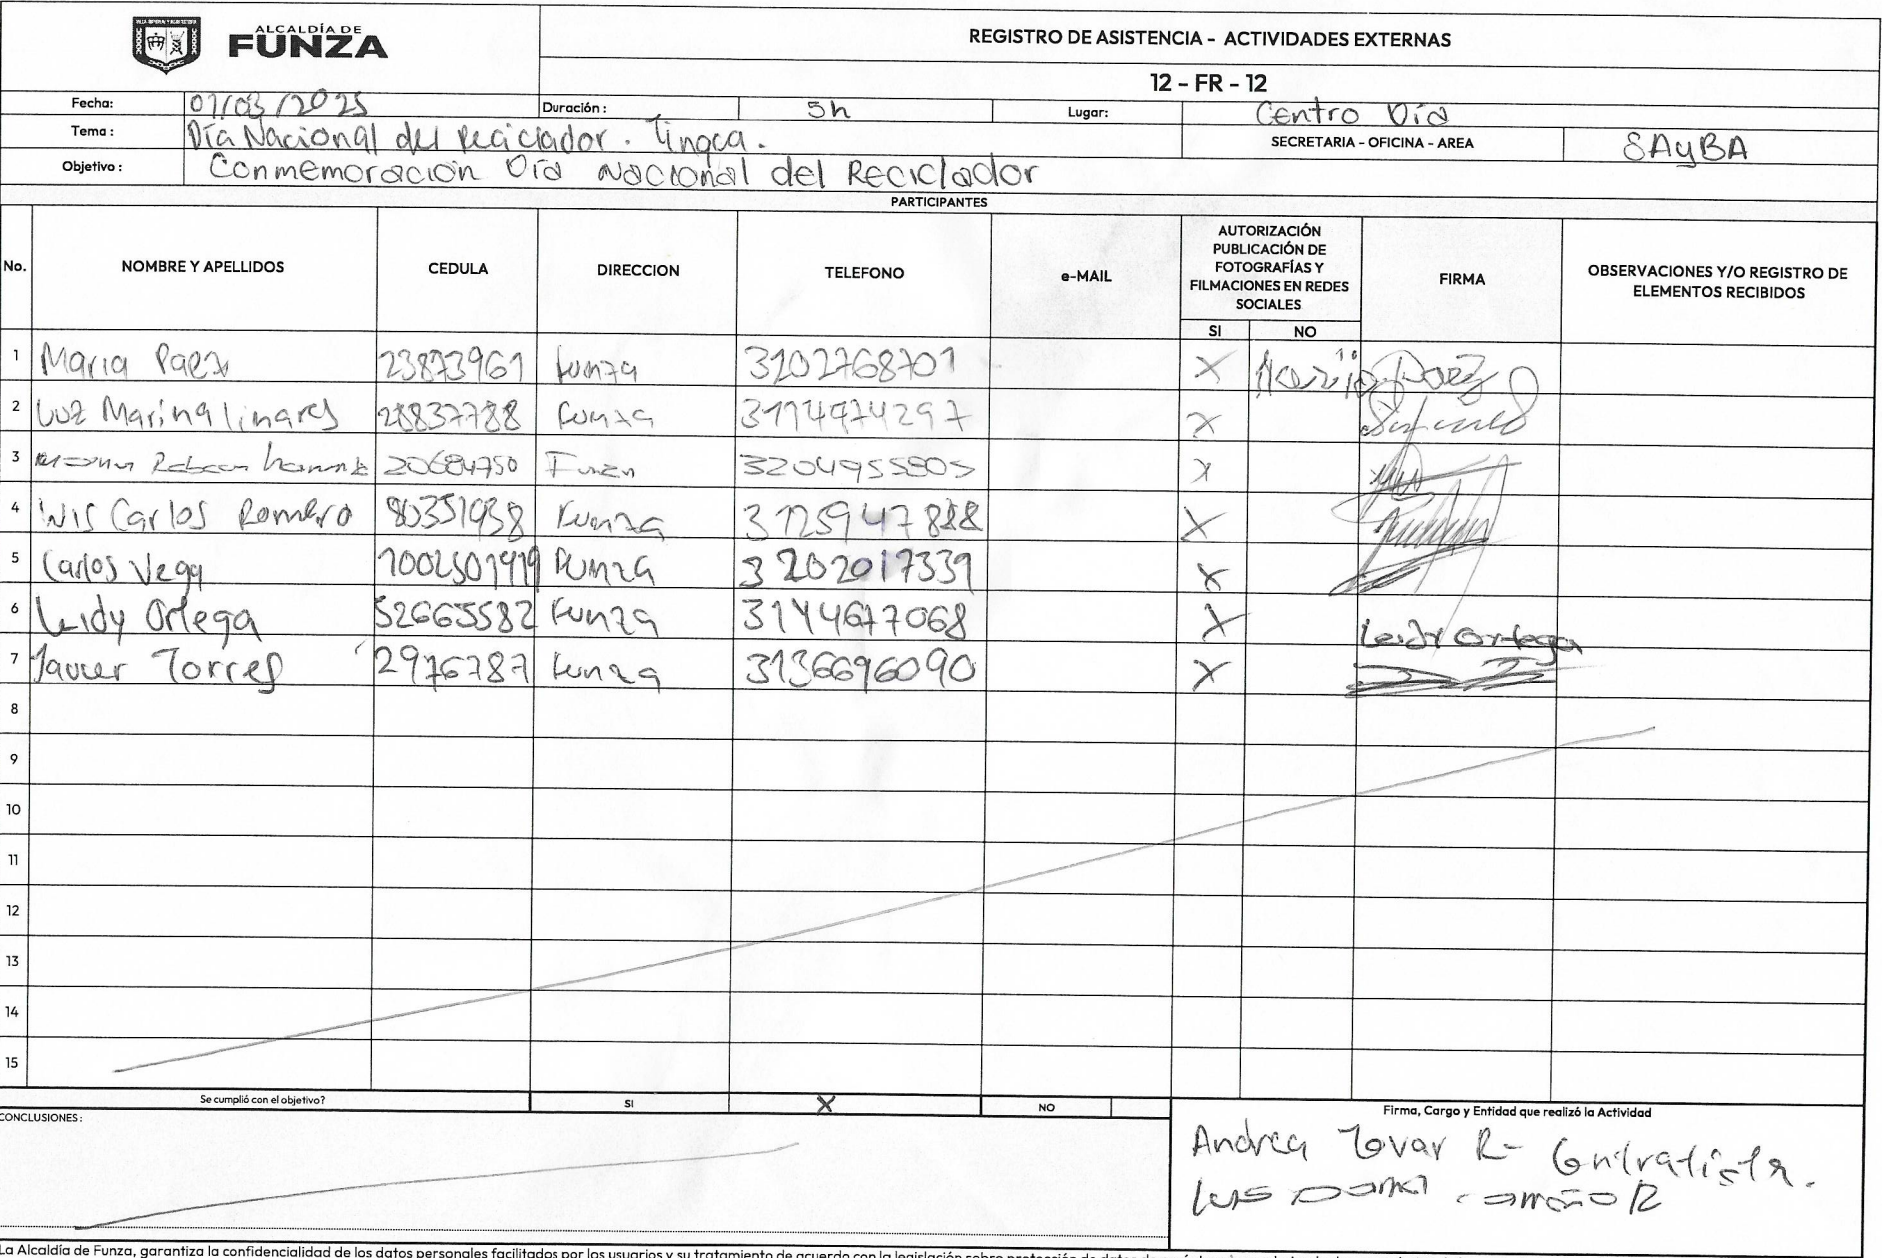 ALCALDÍA DE
FUNZA
REGISTRO DE ASISTENCIA - ACTIVIDADES EXTERNAS
12 - FR - 12
Fecha: 07/03/2025 Duración: 5h Lugar: Centro Día
Tema: Día Nacional del reciclador. Tingca. SECRETARIA - OFICINA - AREA SAyBA
Objetivo: Conmemoración Día Nacional del Reciclador
PARTICIPANTES
No. NOMBRE Y APELLIDOS CEDULA DIRECCION TELEFONO e-MAIL AUTORIZACIÓN PUBLICACIÓN DE FOTOGRAFÍAS Y FILMACIONES EN REDES SOCIALES SI NO FIRMA OBSERVACIONES Y/O REGISTRO DE ELEMENTOS RECIBIDOS
1 Maria Paez 23873961 Funza 3102768701 X
2 Luz Marina linares 28837788 Funza 3114974297 X
3 20684750 Funza 3204955805 X
4 luis Carlos Romero 80351938 Funza 3125947888 X
5 Carlos Vega Funza 3202017339 X
6 Leidy Ortega 52665582 Funza 3144677068 X Leidy Ortega
7 Javier Torres 2976787 Funza 3136696090 X
8
9
10
11
12
13
14
15
Se cumplió con el objetivo? SI X NO
CONCLUSIONES: Firma, Cargo y Entidad que realizó la Actividad
Andrea Tovar R- Contratista.
Luis
La Alcaldía de Funza, garantiza la confidencialidad de los datos personales facilitados por los usuarios y su tratamiento de acuerdo con la legislación sobre protección de datos